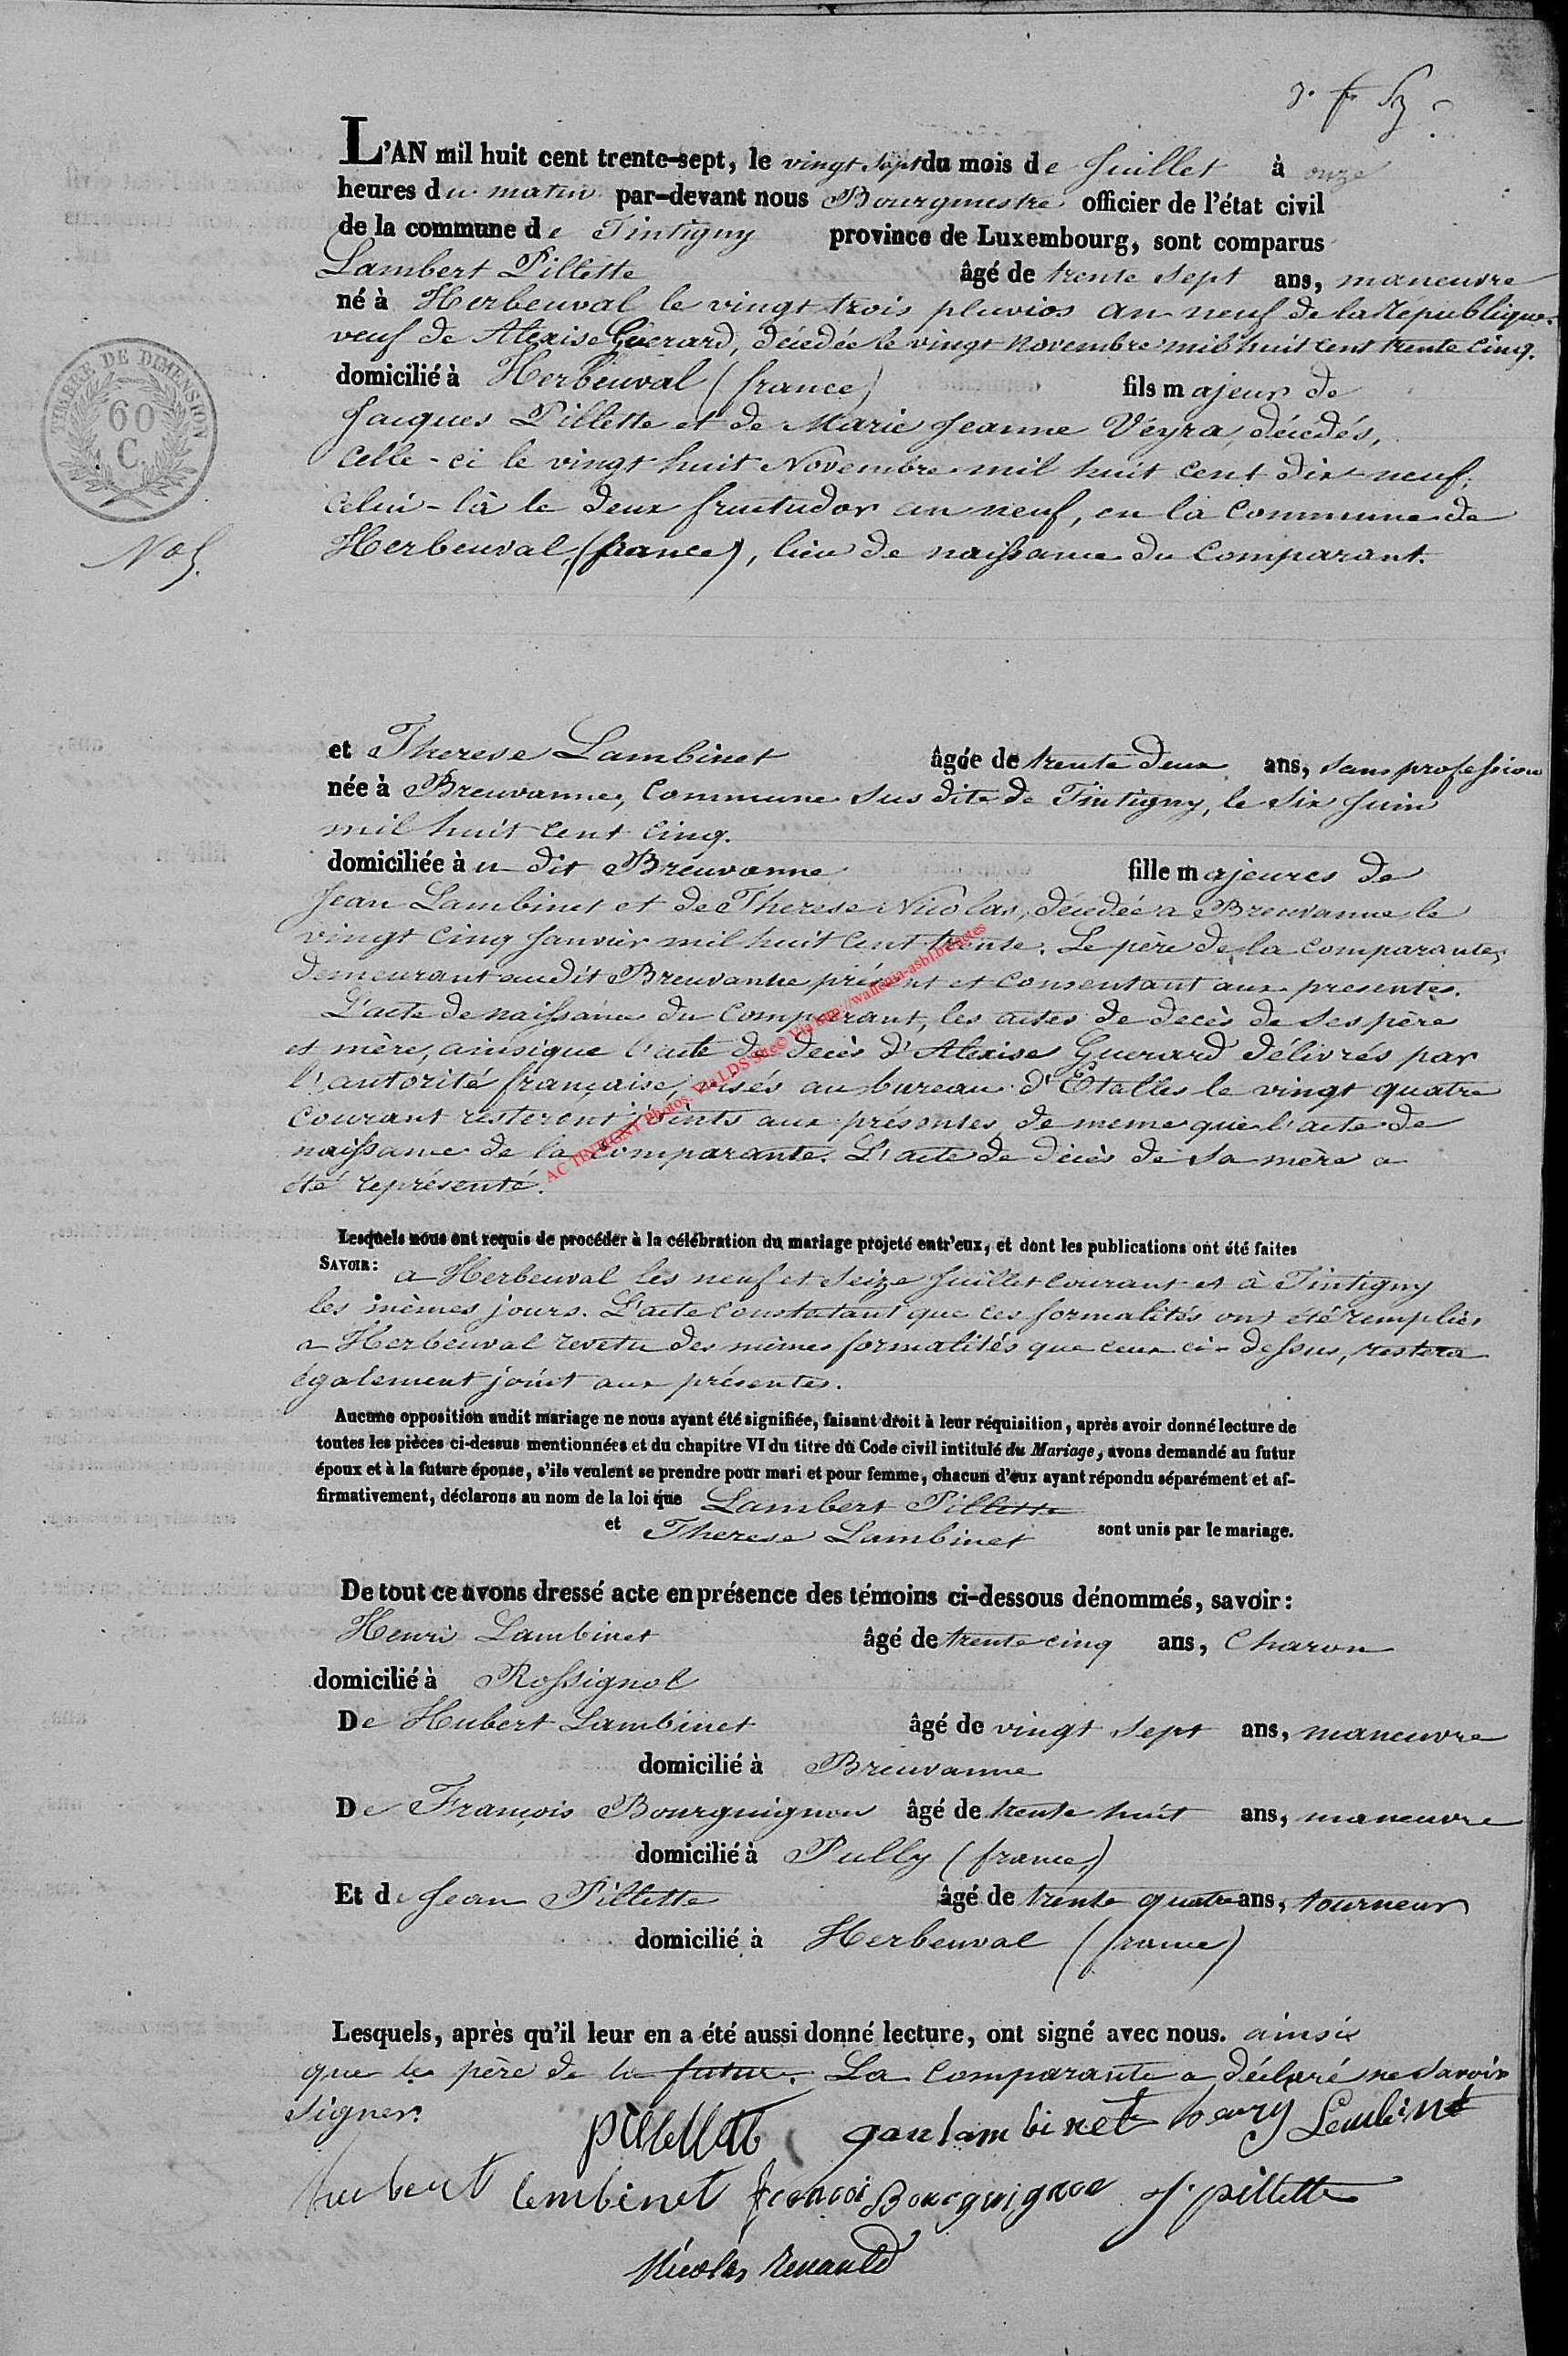 L'AN mil huit cent trente-sept, le vingt sept du mois de Juillet à onze
heures du matin par-devant nous Bourgmestre officier de l'état civil
de la commune de Tintigny province de Luxembourg, sont comparus
Lambert Pillette âgé de trente sept ans, maneuvre
né à Herbeuval le vingt trois pluvios an neuf de la République.
veuf de Alexise Guerard, décédée le vingt novembre mil huit cent trente cinq.
domicilié à Herbeuval (france) fils majeur de
Jacques Pillette et de Marie Jeanne Veyra, décédés,
celle-ci le vingt huit Novembre mil huit cent dix neuf,
celui-là le deux fructudor an neuf, en la Commune de
Herbeuval (france), lieu de naissance du Comparant.
TIMBRE DE DIMENSION
60
C.
No 5.
et Therese Lambinet âgée de trente deux ans, sans profession
née à Breuvanne, Commune sus dite de Tintigny, le six Juin
mil huit cent cinq.
domiciliée à u dit Breuvanne fille majeures de
Jean Lambinet et de Therese Nicolas, décédée a Breuvanne le
vingt cinq Janvier mil huit cent trente. Le père de la comparante,
demeurant audit Breuvanne présent et consentant aux presentes.
L'acte de naissance du Comparant, les actes de decès de ses père
et mère, ainsi que l'acte de decès d'Alexise Guerard délivrés par
l'autorité française, visés au bureau d'Etalles le vingt quatre
courant resteront joints aux présentes, de meme que l'acte de
naissance de la comparante. L'acte de décès de sa mère a
été représenté.
AC TINTIGNY Photos. Via LDS Site© Via http://wallonia-asbl.be/actes
Lesquels nous ont requis de procéder à la célébration du mariage projeté entr'eux, et dont les publications ont été faites
SAVOIR: a Herbeuval les neuf et seize Juillet courant et à Tintigny
les mêmes jours. L'acte constatant que ces formalités ont été remplies
a Herbeuval revetu des mêmes formalités que ceux ci-dessus, restera
également joint aux présentes.
Aucune opposition audit mariage ne nous ayant été signifiée, faisant droit à leur réquisition, après avoir donné lecture de
toutes les pièces ci-dessus mentionnées et du chapitre VI du titre du Code civil intitulé du Mariage, avons demandé au futur
époux et à la future épouse, s'ils veulent se prendre pour mari et pour femme, chacun d'eux ayant répondu séparément et af-
firmativement, déclarons au nom de la loi que Lambert Pillette
et Therese Lambinet sont unis par le mariage.
De tout ce avons dressé acte en présence des témoins ci-dessous dénommés, savoir:
Henri Lambinet âgé de trente cinq ans, Charon
domicilié à Rossignol
De Hubert Lambinet âgé de vingt sept ans, maneuvre
domicilié à Breuvanne
De François Bourguignon âgé de trente huit ans, maneuvre
domicilié à Pully (france)
Et de Jean Pillette âgé de trente quatre ans, tourneur
domicilié à Herbeuval (france)
Lesquels, après qu'il leur en a été aussi donné lecture, ont signé avec nous. ainsi
que le père de la future. La Comparante a déclaré ne savoir
signer.
pillette janlambinet henry Lembint
hubert lembinet francoi Bourguignon J. pillette
Nicolas Renauld